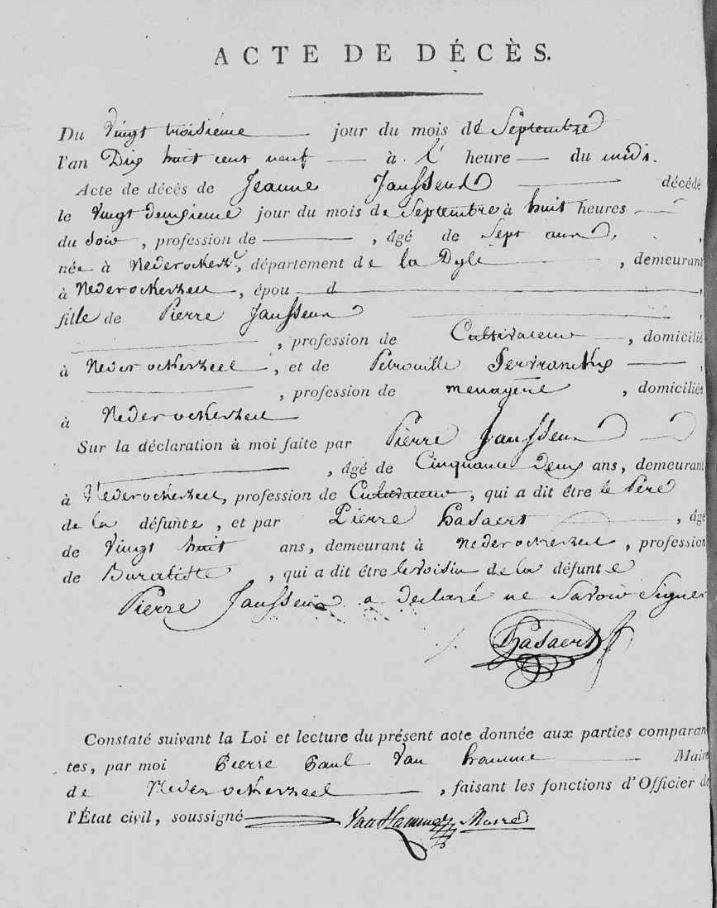 ACTE DE DÉCÈS.
Du Vingt troisième jour du mois de Septembre
l'an Dix huit cent neuf à l' heure du midi.
Acte de décès de Jeanne Janssens décédé
le vingt deuxieme jour du mois de Septembre à huit heures
du Soir, profession de , âgé de Sept ans,
née à Nederockerz, département de la Dyle, demeurant
à Nederockerzeel, épou d
fille de Pierre Janssens
, profession de Cultivateur, domicilié
à Nederockerzeel, et de Petronille
, profession de menagere, domiciliée
à Nederockerzeel
Sur la déclaration à moi faite par Pierre Janssens
, âgé de Cinquante deux ans, demeurant
à Nederockerzeel, profession de Cultivateur, qui a dit être le Père
de la défunte, et par Pierre Hasaert , âgé
de Vingt huit ans, demeurant à nederockerzeel, profession
de , qui a dit être le voisin de la défunte
Pierre Janssens a declaré ne Savoir Signer
Hasaert
Constaté suivant la Loi et lecture du présent acte donnée aux parties comparan
tes, par moi Pierre Paul Van hamme Maire
de Nederockerzeel, faisant les fonctions d'Officier de
l'État civil, soussigné VanHamme Maire